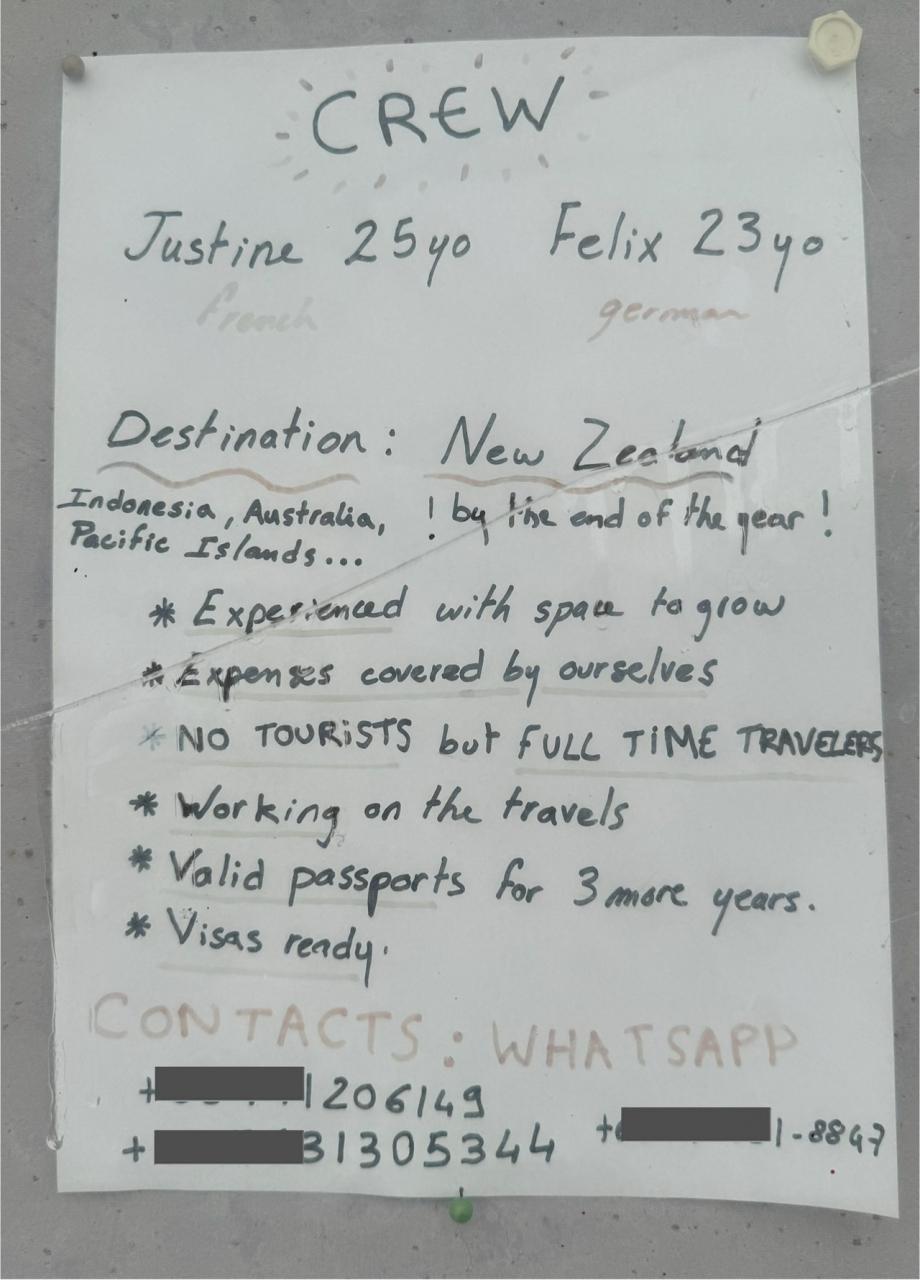 CREW
Justine 25yo Felix 23yo
french german
Destination: New Zealand
Indonesia, Australia, ! by the end of the year !
Pacific Islands...
* Experienced with space to grow
* Expenses covered by ourselves
* NO TOURISTS but FULL TIME TRAVELERS
* Working on the travels
* Valid passports for 3 more years.
* Visas ready.
CONTACTS: WHATSAPP
+ 1206149
+ 31305344 + 1-8847